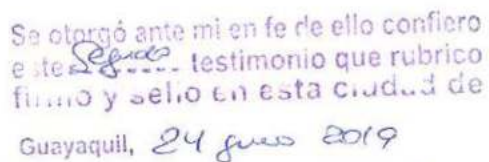 Se otorgó ante mi en fe de ello confiero
este Segundo testimonio que rubrico
firmo y sello en esta ciudad de
Guayaquil, 24 2019